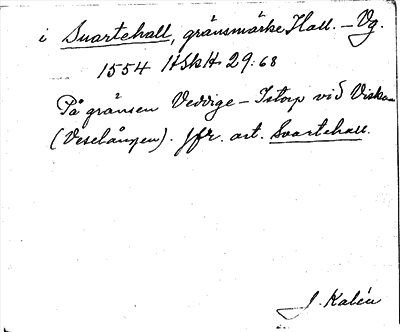 i Svartehall, gränsmärke Hall. – Vg.
1554 HSkH 29:68
På gränsen Veddige – Istorp vid Viskan
(Veselången). Jfr. art. Svartehall.
J. Kalén